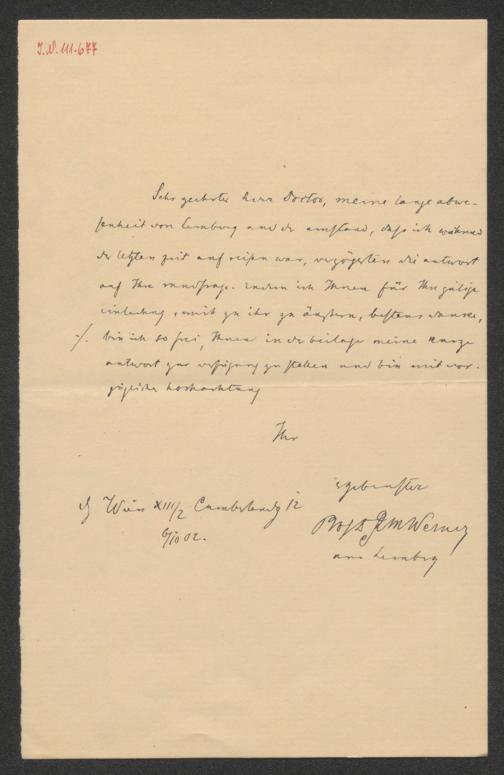 I.N. 111.677
Sehr geehrter Herr Doctor, meine lange abwe-
senheit von Lemberg und der umstand, dass ich während
der letzten zeit auf reisen war, verzögerten die antwort
auf Ihre rundfrage. indem ich Ihnen für Ihre gütige
einladung, mich zu ihr zu äussern, bestens danke,
·/. bin ich so frei, Ihnen in der beilage meine kurze
antwort zur verfügung zu stellen und bin mit vor-
züglicher hochachtung
Ihr
ergebenster
Wien XIII/2 Cumberlandg 12
Prof Dr RM Werner
6/10 02.
aus Lemberg